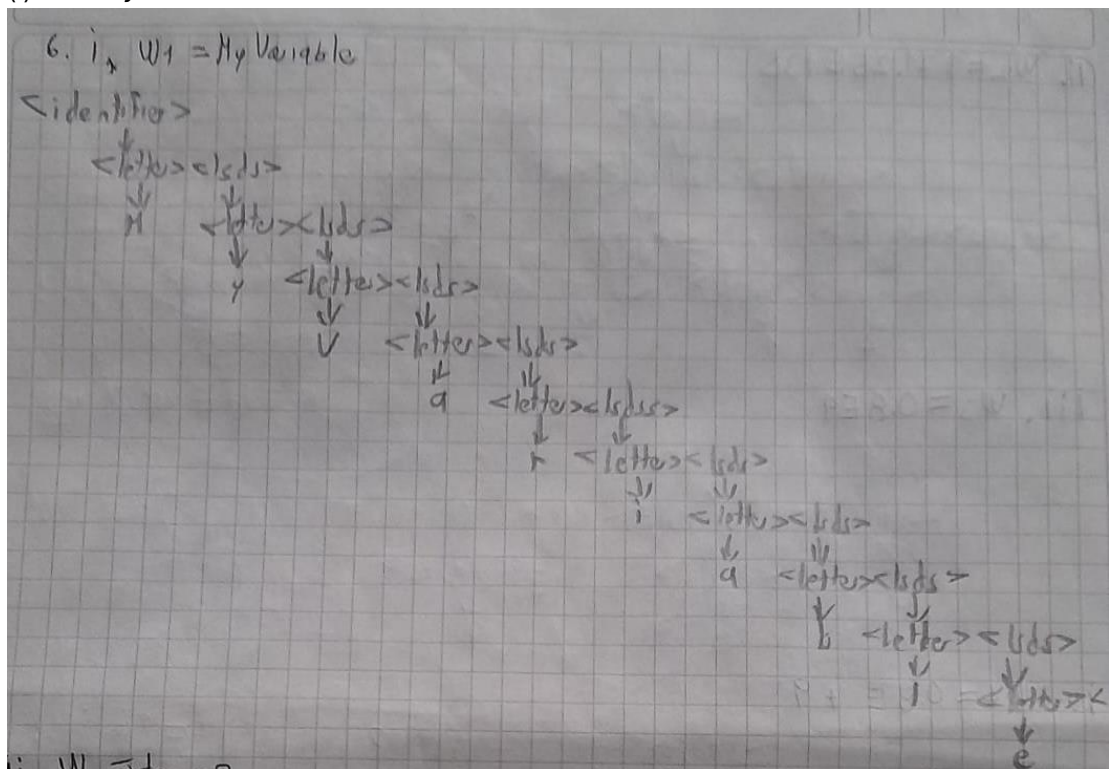 6. i, W1 = MyVariable
<identifier>
<letter><lsds>
M <letter><lsds>
y <letter><lsds>
V <letter><lsds>
a <letter><lsdss>
r <letter><lsds>
i <letter><lsds>
a <letter><lsds>
b <letter><lsds>
l <letter><
e